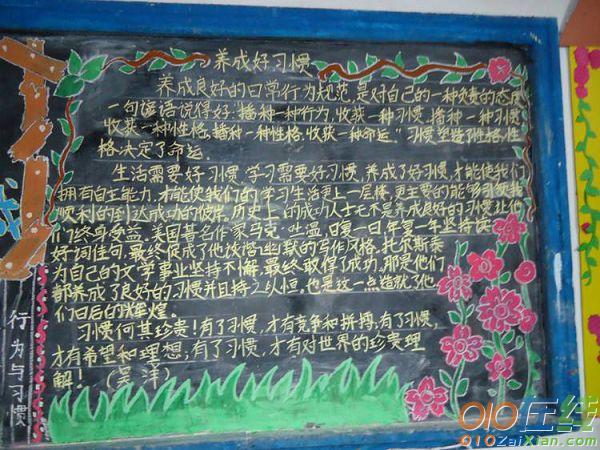 养成好习惯
养成良好的日常行为规范,是对自己的一种负责的态度
一句谚语说得好:"播种一种行为,收获一种习惯,播种一种习惯,
收获一种性格,播种一种性格,收获一种命运。"习惯塑造了性格,性
格决定了命运。
生活需要好习惯,学习需要好习惯,养成了好习惯,才能使我们
拥有自主能力,才能使我们的学习生活更上一层楼,更主要的能够引领我
顺利的到达成功的彼岸。历史上的成功人士无不是养成良好的习惯让他
们终身受益。美国著名作家马克·吐温,日复一日年复一年坚持
好词佳句,最终促成了他诙谐幽默的写作风格。托尔斯泰
为自己的文学事业坚持不懈,最终取得了成功,那是他们
都养成了良好的习惯并且持之以恒,也是这一点造就了他
们日后的辉煌。
习惯何其珍贵!有了习惯,才有竞争和拼搏;有了习惯,
才有希望和理想;有了习惯,才有对世界的珍贵理
解!(吴洋)
行为与习惯
010在线
010ZaiXian.com